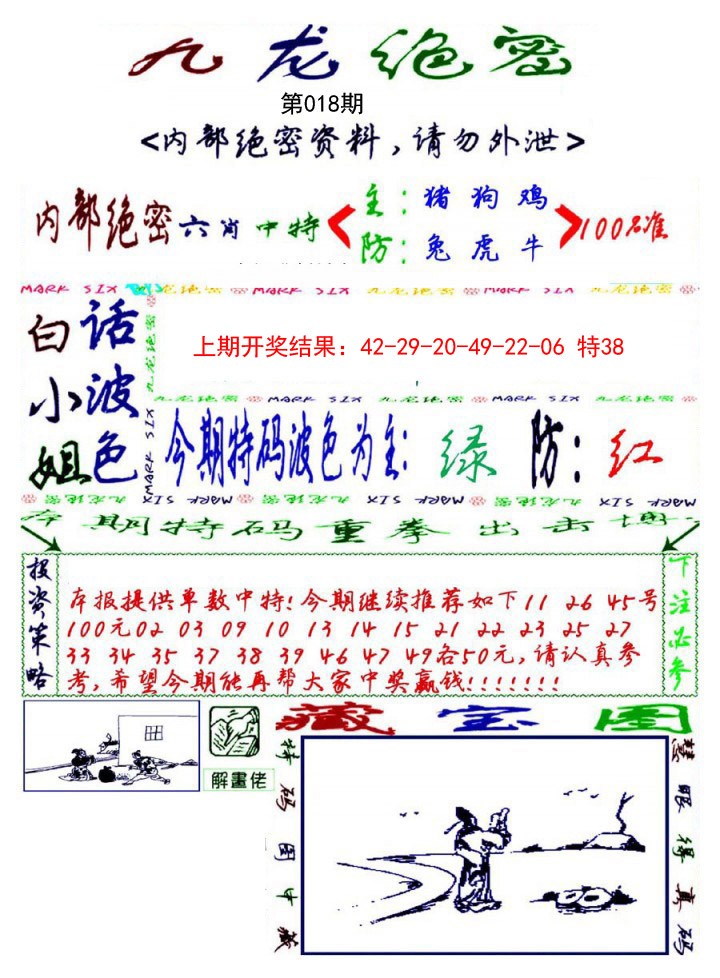 九龙绝密
第018期
<内部绝密资料,请勿外泄>
内部绝密六肖中特
主:猪狗鸡
防:兔虎牛
100%准
MARK SIX 九龙绝密 MARK SIX 九龙绝密 MARK SIX 九龙绝密
白小姐
话波色
九龙绝密
MARK SIX
上期开奖结果：42-29-20-49-22-06 特38
九龙绝密 MARK SIX 九龙绝密 MARK SIX 九龙绝密
今期特码波色为主:绿 防:红
九龙绝密 MARK SIX 九龙绝密 MARK SIX 九龙绝密 MARK SIX
本期特码重拳出击博
投资策略
本报提供单数中特!今期继续推荐如下11 26 45号
100元02 03 09 10 13 14 15 21 22 23 25 27
33 34 35 37 38 39 46 47 49各50元,请认真参
考,希望今期能再帮大家中奖赢钱!!!!!!!
下注必参
解畫佬
藏宝图
特码图中藏
慧眼得真码